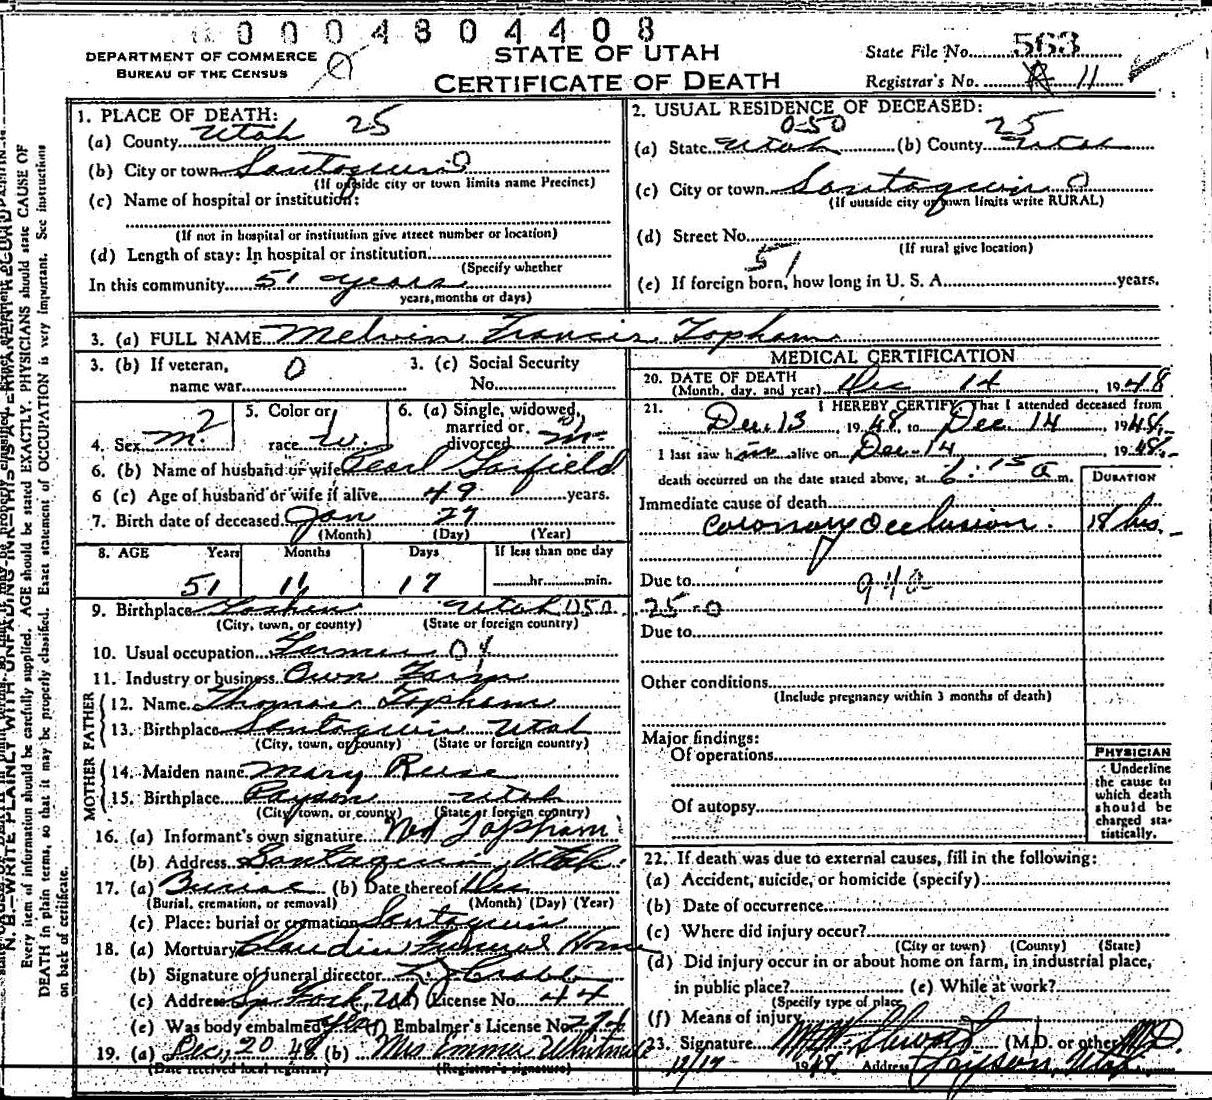 0004804408
DEPARTMENT OF COMMERCE
BUREAU OF THE CENSUS
STATE OF UTAH
CERTIFICATE OF DEATH
State File No. 563
Registrar's No. 11
N. B.—WRITE PLAINLY WITH UNFADING INK—THIS IS A PERMANENT RECORD
Every item of information should be carefully supplied. AGE should be stated EXACTLY. PHYSICIANS should state CAUSE OF
DEATH in plain terms, so that it may be properly classified. Exact statement of OCCUPATION is very important. See instructions
on back of certificate.
1. PLACE OF DEATH:
(a) County Utah 25
(b) City or town Santaquin 0
(If outside city or town limits name Precinct)
(c) Name of hospital or institution:
(If not in hospital or institution give street number or location)
(d) Length of stay: In hospital or institution
(Specify whether
In this community 51 years
years, months or days)
2. USUAL RESIDENCE OF DECEASED:
050 25
(a) State Utah (b) County Utah
(c) City or town Santaquin 0
(If outside city or town limits write RURAL)
(d) Street No.
(If rural give location)
51
(e) If foreign born, how long in U. S. A. years.
3. (a) FULL NAME Melvin Francis Topham
3. (b) If veteran, name war 0
3. (c) Social Security No.
4. Sex M. 2
5. Color or race W.
6. (a) Single, widowed, married or divorced M.
6. (b) Name of husband or wife Pearl Garfield
6 (c) Age of husband or wife if alive 49 years.
7. Birth date of deceased Jan 27
(Month) (Day) (Year)
8. AGE Years Months Days If less than one day
51 11 17 hr. min.
9. Birthplace Goshen Utah 050
(City, town, or county) (State or foreign country)
10. Usual occupation Farmer 01
11. Industry or business Own Farm
FATHER
12. Name Thomas Topham
13. Birthplace Santaquin Utah
(City, town, or county) (State or foreign country)
MOTHER
14. Maiden name Mary Reese
15. Birthplace Payson Utah
(City, town, or county) (State or foreign country)
16. (a) Informant's own signature Ned Topham
(b) Address Santaquin, Utah
17. (a) Burial (b) Date thereof Dec
(Burial, cremation, or removal) (Month) (Day) (Year)
(c) Place: burial or cremation Santaquin
18. (a) Mortuary Claudin Funeral Home
(b) Signature of funeral director
(c) Address Sp Fork, Ut (d) License No. 44
(e) Was body embalmed yes (f) Embalmer's License No.
19. (a) Dec. 20 48 (b) Mrs Emma Whitmore
(Date received local registrar) (Registrar's signature)
MEDICAL CERTIFICATION
20. DATE OF DEATH
(Month, day, and year) Dec 14 1948
21. I HEREBY CERTIFY, That I attended deceased from
Dec. 13, 1948, to Dec. 14, 1948,
I last saw him alive on Dec. 14 1948,
death occurred on the date stated above, at 6:15 a m.
DURATION
Immediate cause of death
Coronary Occlusion. 18 hrs.
Due to 94a
25-0
Due to
Other conditions
(Include pregnancy within 3 months of death)
Major findings:
Of operations
Of autopsy
PHYSICIAN
Underline
the cause to
which death
should be
charged sta-
tistically.
22. If death was due to external causes, fill in the following:
(a) Accident, suicide, or homicide (specify)
(b) Date of occurrence
(c) Where did injury occur?
(City or town) (County) (State)
(d) Did injury occur in or about home on farm, in industrial place,
in public place? (e) While at work?
(Specify type of place
(f) Means of injury
23. Signature Stewart (M.D. or other) M.D.
12/17 1948 Address Payson, Utah